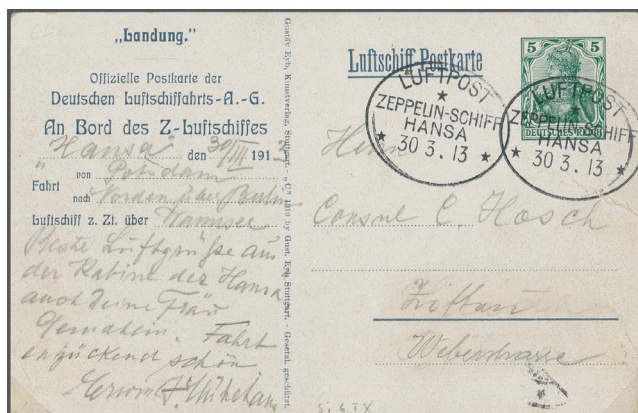 „Landung."
Offizielle Postkarte der
Deutschen Luftschiffahrts-A.-G.
An Bord des Z-Luftschiffes
"Hansa" den 30/III 1913
Fahrt von Potsdam
nach Norden über Berlin
Luftschiff z. Zt. über Wannsee
Beste Luftgrüße aus
der Kabine der Hansa
auch Deine Frau
Gemahlin. Fahrt
entzückend schön
Erwin
Gustav Eyb, Kunstverlag, Stuttgart. - „C" 1910 by Gust. Eyb, Stuttgart. - Gesetzl. geschützt.
Luftschiff Postkarte
5 5
DEUTSCHES REICH
LUFTPOST
ZEPPELIN-SCHIFF
HANSA
30 3. 13
LUFTPOST
ZEPPELIN-SCHIFF
HANSA
30 3. 13
Herrn
Consul C. Hosch
Zittau
Weberstrasse